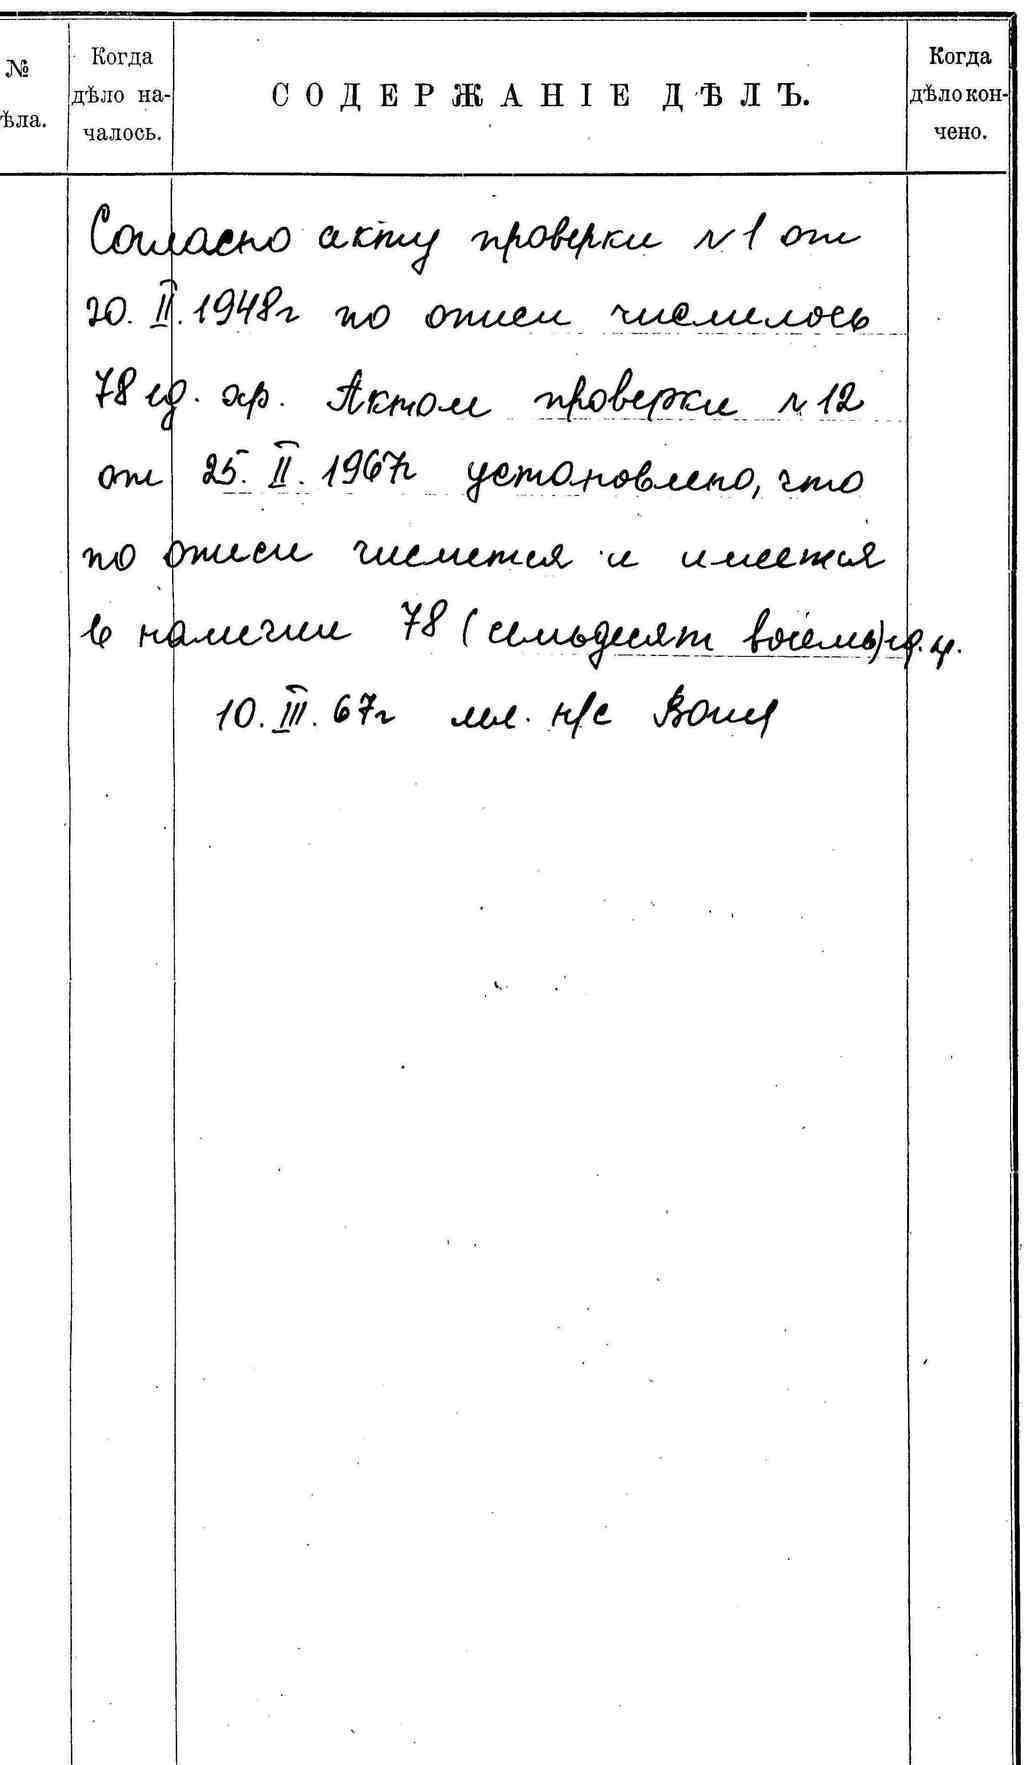 №
ѣла.
Когда
дѣло на-
чалось.
СОДЕРЖАНІЕ ДѢЛЪ.
Когда
дѣло кон-
чено.
Согласно акту проверки №1 от
20.II.1948г по описи числилось
78 ед. хр. Актом проверки №12
от 25.II.1967г установлено, что
по описи числится и имеется
в наличии 78 (семьдесят восемь) ед. хр.
10.III.67г мл. н/с